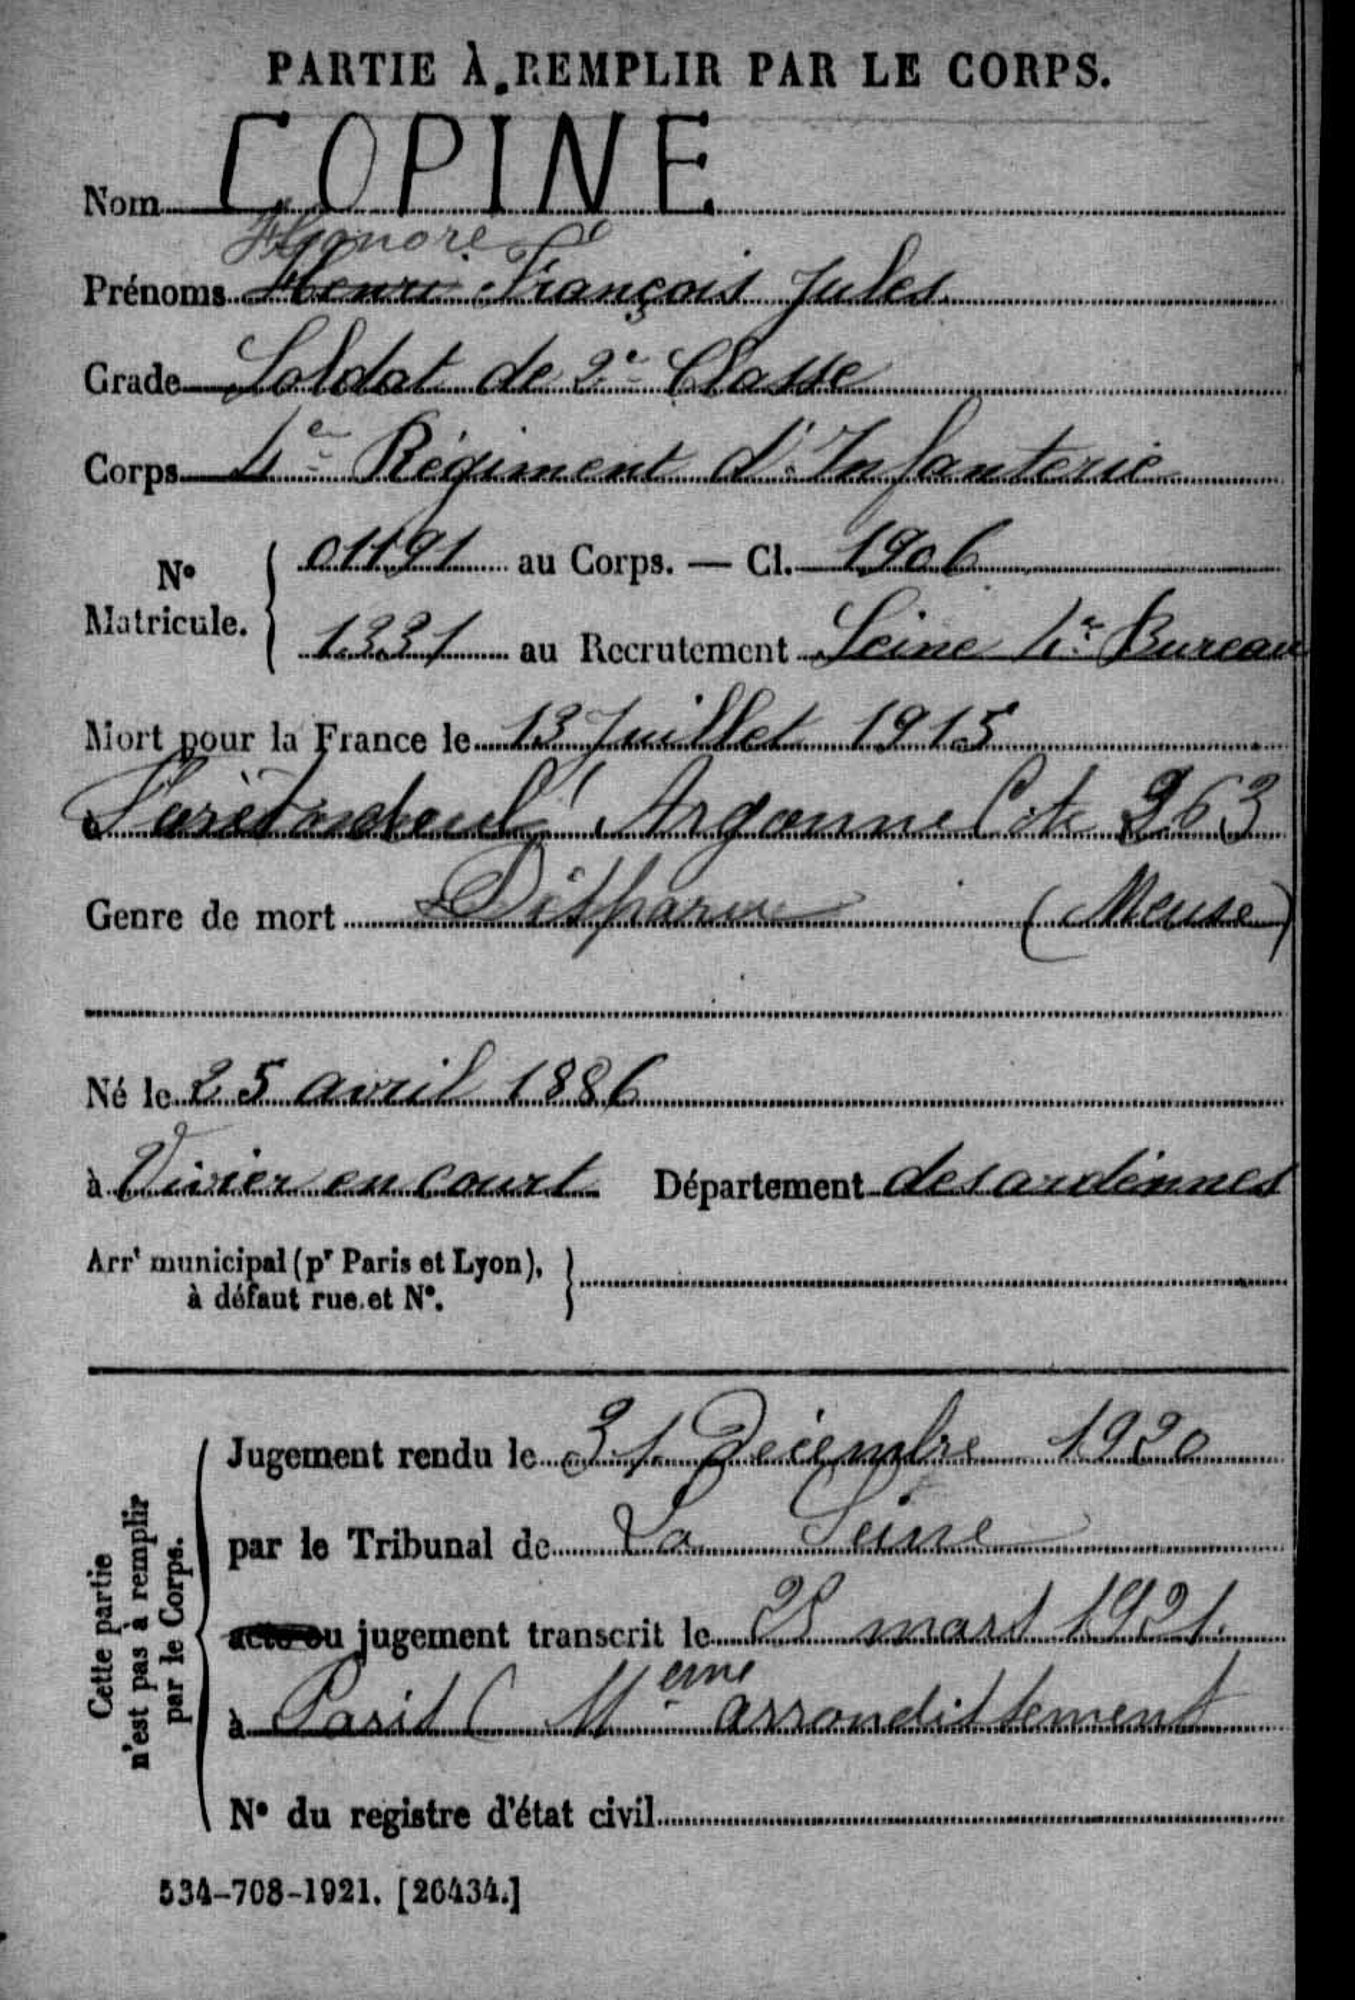 PARTIE À REMPLIR PAR LE CORPS.
Nom COPINE
Honoré
Prénoms Henri François Jules
Grade Soldat de 2e Classe
Corps 4e Régiment d'Infanterie
No Matricule. { 01191 au Corps. — Cl. 1906
1331 au Recrutement Seine 4e Bureau
Mort pour la France le 13 Juillet 1915
à Argonne Cote 263
Genre de mort Disparu (Meuse)
Né le 25 avril 1886
à Vivier en court Département des ardennes
Arrt municipal (pr Paris et Lyon), à défaut rue et No. }
Cette partie n'est pas à remplir par le Corps.
Jugement rendu le 31 Décembre 1920
par le Tribunal de La Seine
acte ou jugement transcrit le mars 1921.
à Paris 11eme arrondissement
No du registre d'état civil
534-708-1921. [26434.]